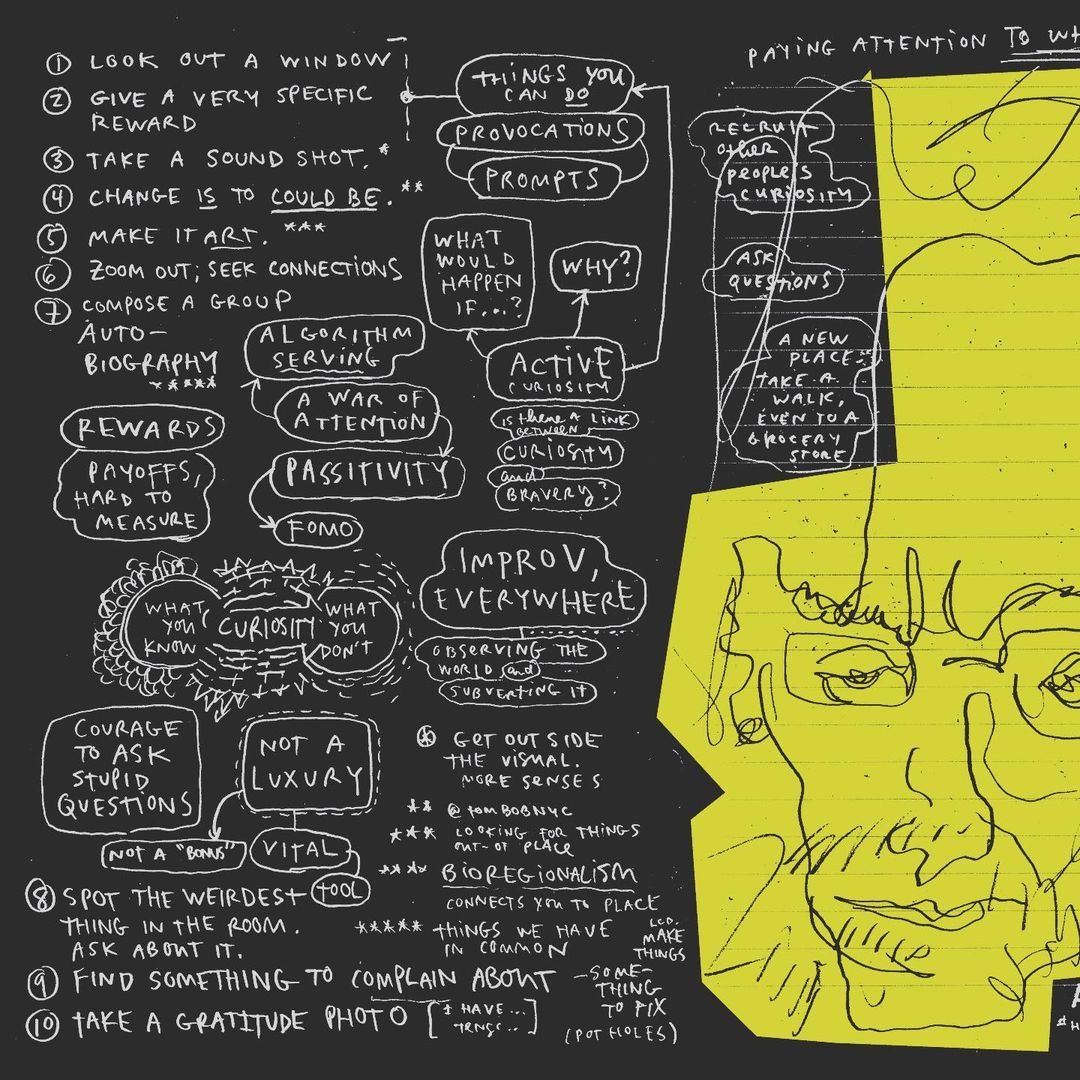 ① LOOK OUT A WINDOW
② GIVE A VERY SPECIFIC
REWARD
③ TAKE A SOUND SHOT.*
④ CHANGE IS TO COULD BE.**
⑤ MAKE IT ART. ***
⑥ ZOOM OUT; SEEK CONNECTIONS
⑦ COMPOSE A GROUP
AUTO-
BIOGRAPHY
*****
THINGS YOU
CAN DO
PROVOCATIONS
PROMPTS
WHAT
WOULD
HAPPEN
IF...?
WHY?
ACTIVE
CURIOSITY
IS THERE A LINK
BETWEEN
CURIOSITY
and
BRAVERY?
ALGORITHM
SERVING
A WAR OF
ATTENTION
PASSITIVITY
FOMO
REWARDS
PAYOFFS,
HARD TO
MEASURE
WHAT
YOU
KNOW
CURIOSITY
WHAT
YOU
DON'T
IMPROV,
EVERYWHERE
OBSERVING THE
WORLD and
SUBVERTING IT
COURAGE
TO ASK
STUPID
QUESTIONS
NOT A
LUXURY
NOT A "BONUS"
VITAL
TOOL
* GET OUTSIDE
THE VISUAL.
MORE SENSES
** @TOMBOBNYC
*** LOOKING FOR THINGS
OUT-OF PLACE
**** BIOREGIONALISM
CONNECTS YOU TO PLACE
***** THINGS WE HAVE
IN COMMON
MAKE
THINGS
⑧ SPOT THE WEIRDEST
THING IN THE ROOM.
ASK ABOUT IT.
⑨ FIND SOMETHING TO COMPLAIN ABOUT
-SOME-
THING
TO FIX
(POT HOLES)
⑩ TAKE A GRATITUDE PHOTO [I HAVE...
PAYING ATTENTION TO WH
RECRUIT
other
PEOPLE'S
CURIOSITY
ASK
QUESTIONS
A NEW
PLACE:
TAKE A
WALK,
EVEN TO A
GROCERY
STORE